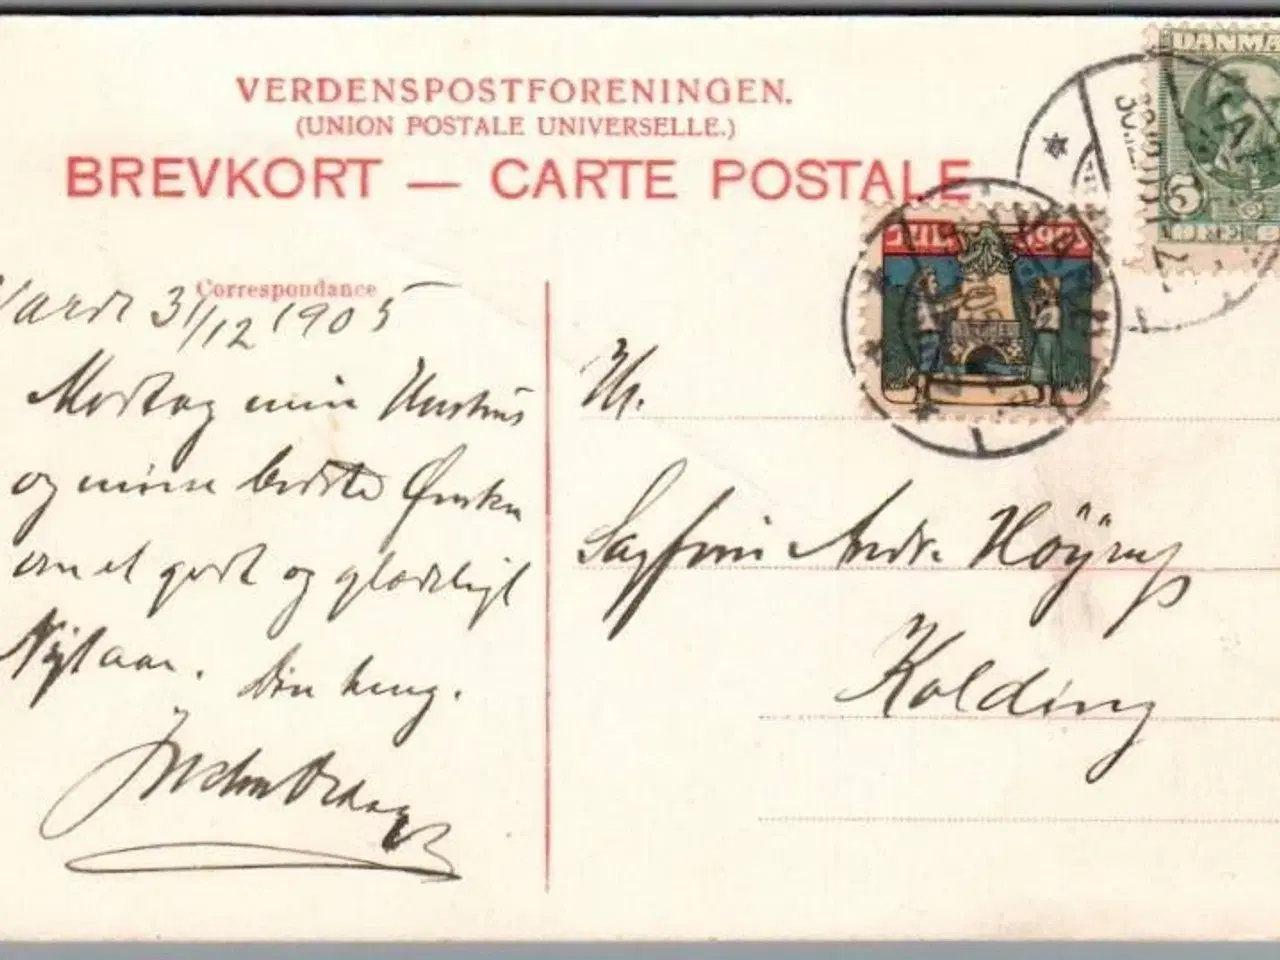 VERDENSPOSTFORENINGEN.
(UNION POSTALE UNIVERSELLE.)
BREVKORT — CARTE POSTALE
DANMA
5
JUL 1905
Correspondance
Varde 31/12 1905
Modtag min
og mine bedste Ønsker
om et godt og glædeligt
Nytaar. Din heng.
Hr.
Sagfører Andr. Höÿrup
Kolding